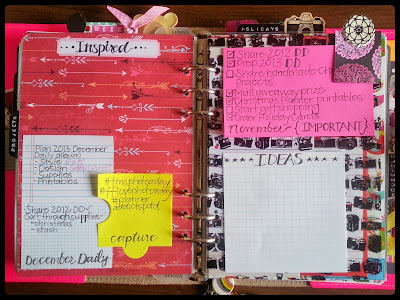 WEEK
Inspired
PROJECTS
Plan 2013 December
Daily album
- Style
- Design
Supplies
- Printables
Share 2012 DD
Sort through supplies
- christmas
- stash
December Daily
#fmsphotoaday
#lovephotoaday
#planner
addictspfd
capture
HOLIDAYS
Share 2012 DD
Prep 2013 DD
Share handmade
Project
Mail giveaway prize
Christmas Planner printables
Start gift shopping
Order Holiday Cards
November {IMPORTANT}
IDEAS